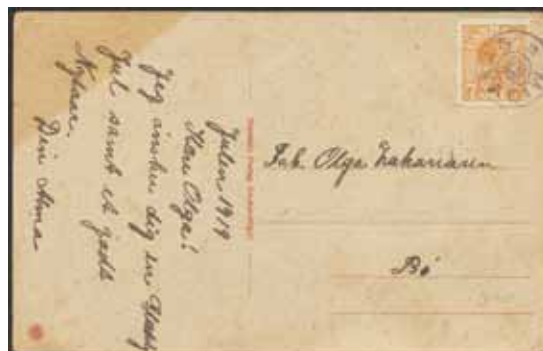 Julen 1919
Kære Olga!
Jeg ønsker dig en
Jul samt et godt
Nytaar.
Din Anna
Frk. Olga Zakariasen
Bø
7